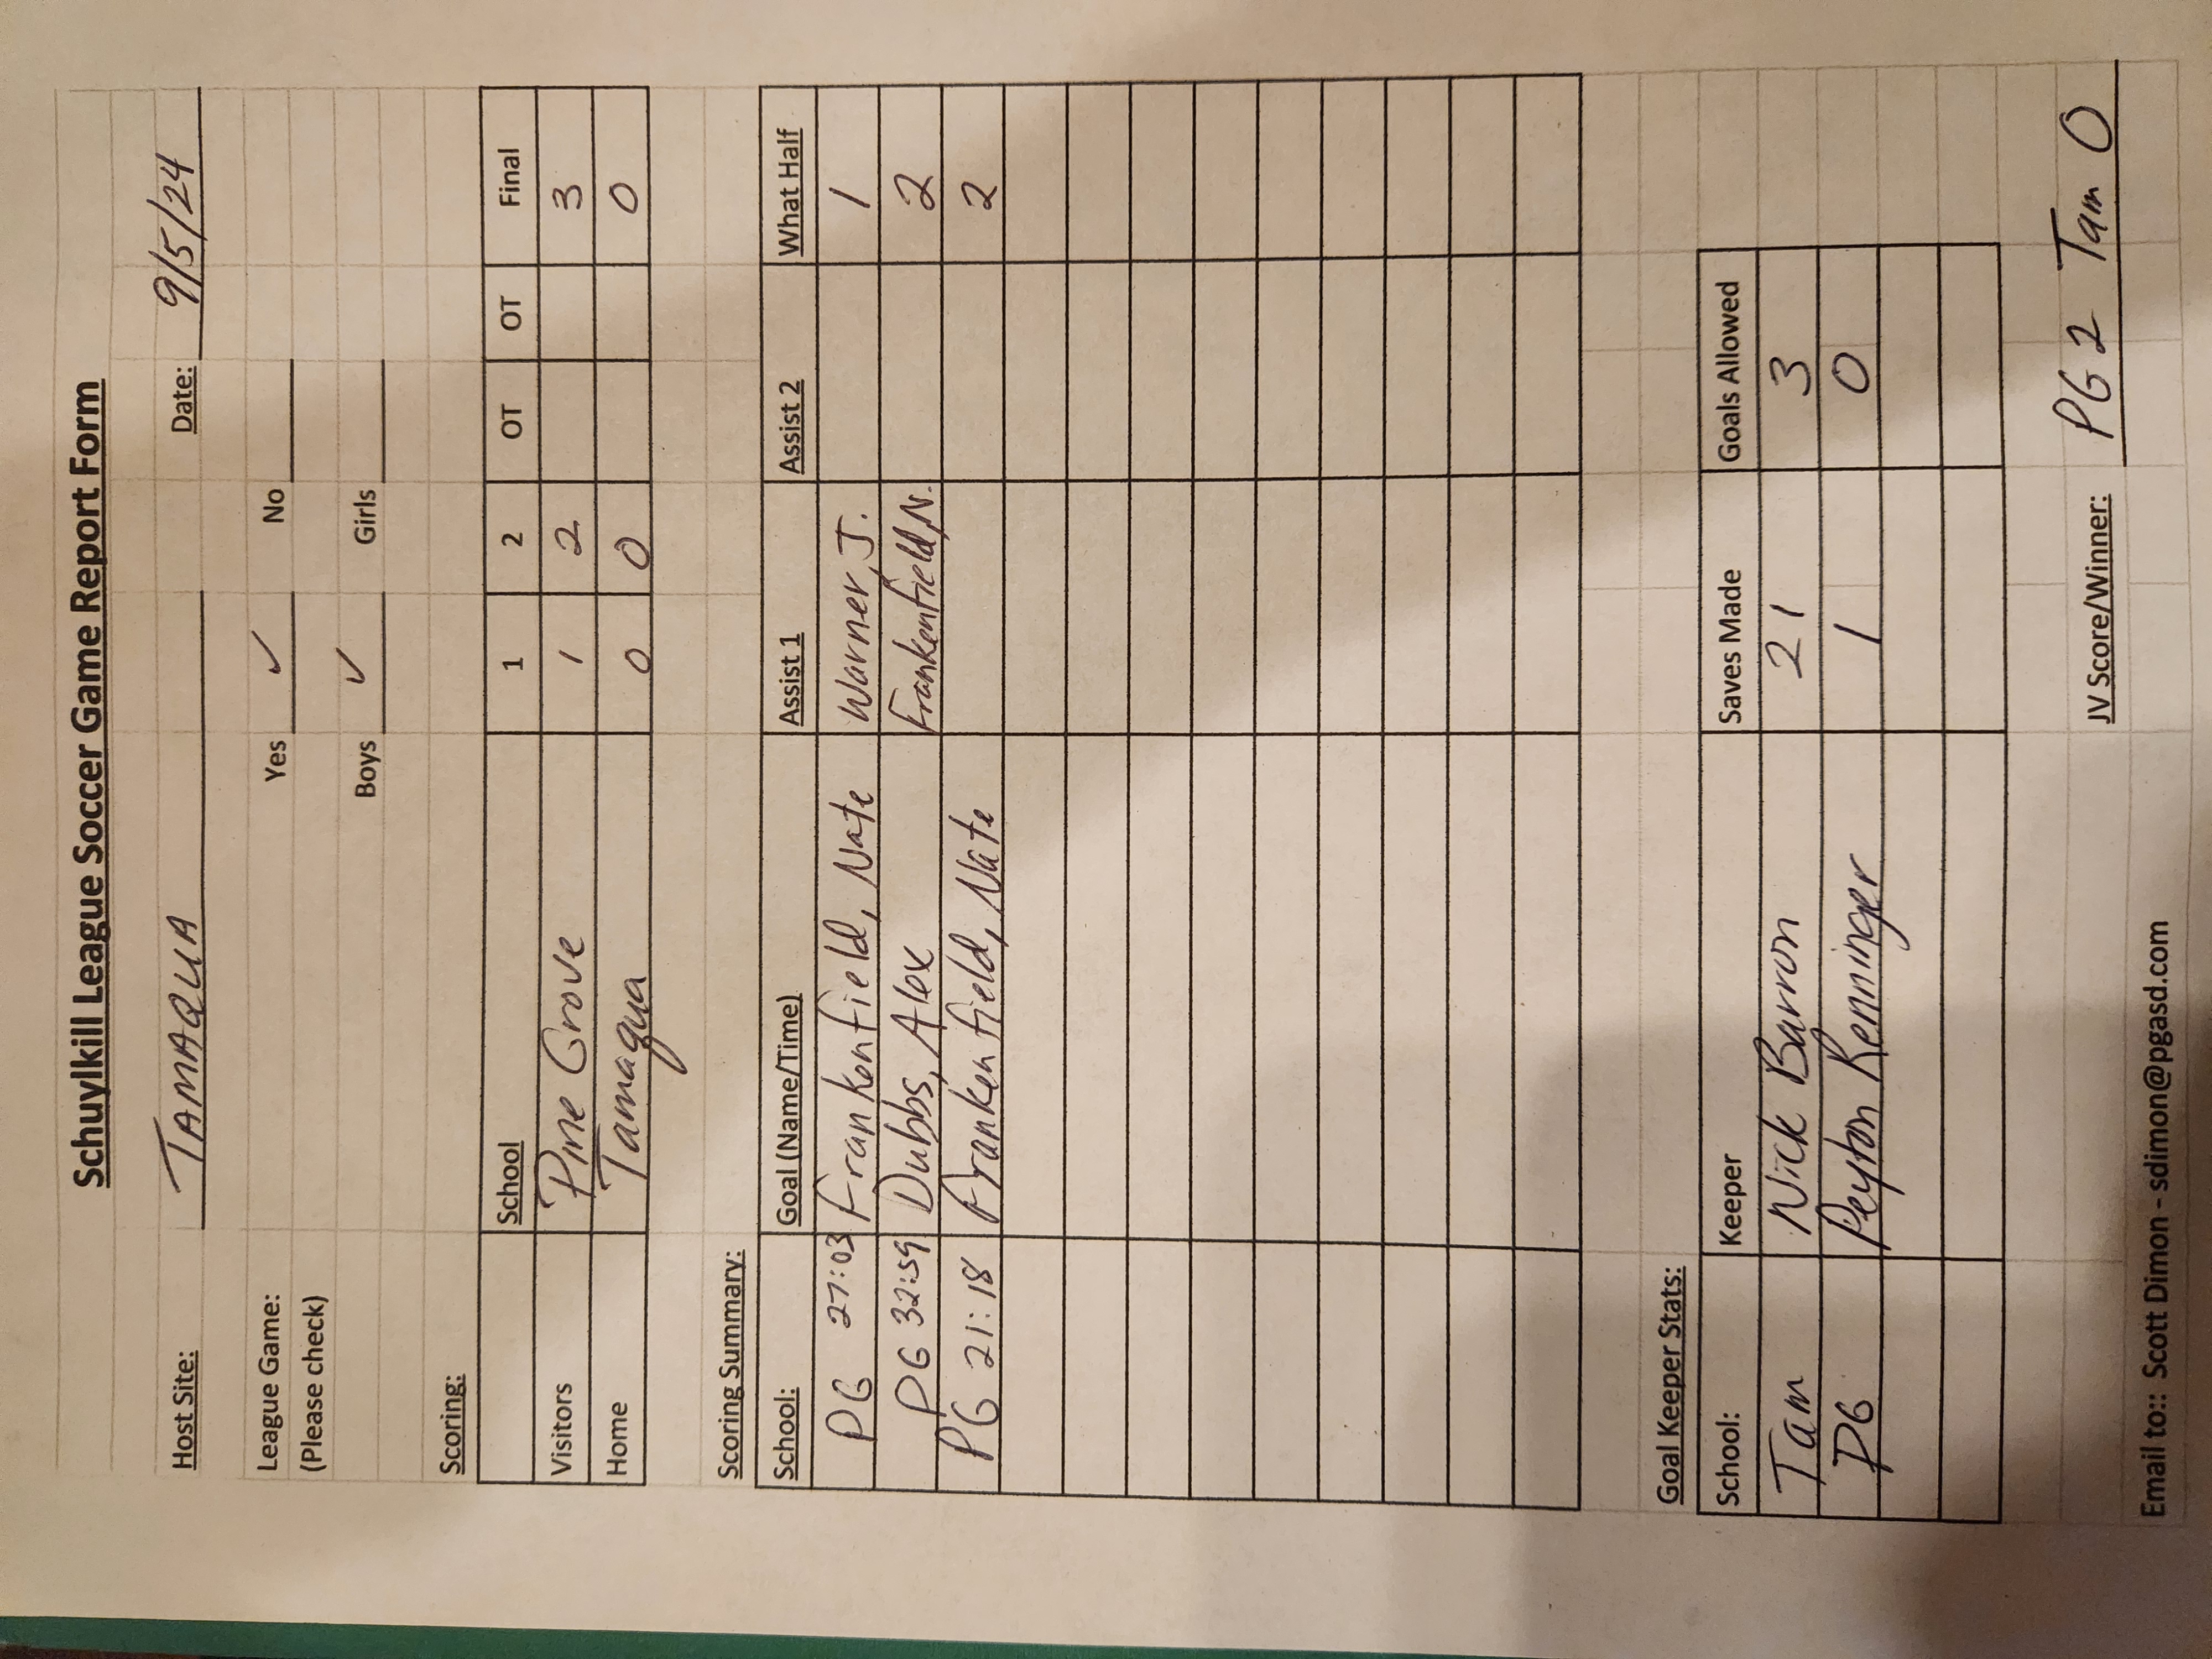 Schuylkill League Soccer Game Report Form
Host Site: TAMAQUA Date: 9/5/24
League Game: Yes ✓ No
(Please check)
Boys ✓ Girls
Scoring:
School 1 2 OT OT Final
Visitors Pine Grove 1 2 3
Home Tamaqua 0 0 0
Scoring Summary:
School: Goal (Name/Time) Assist 1 Assist 2 What Half
PG 27:03 Frankenfield, Nate Warner, J. 1
PG 32:59 Dubbs, Alex Frankenfield, N. 2
PG 21:18 Frankenfield, Nate 2
Goal Keeper Stats:
School: Keeper Saves Made Goals Allowed
Tam Nick Barron 21 3
PG Peyton Kenninger 1 0
JV Score/Winner: PG 2 Tam 0
Email to:: Scott Dimon - sdimon@pgasd.com